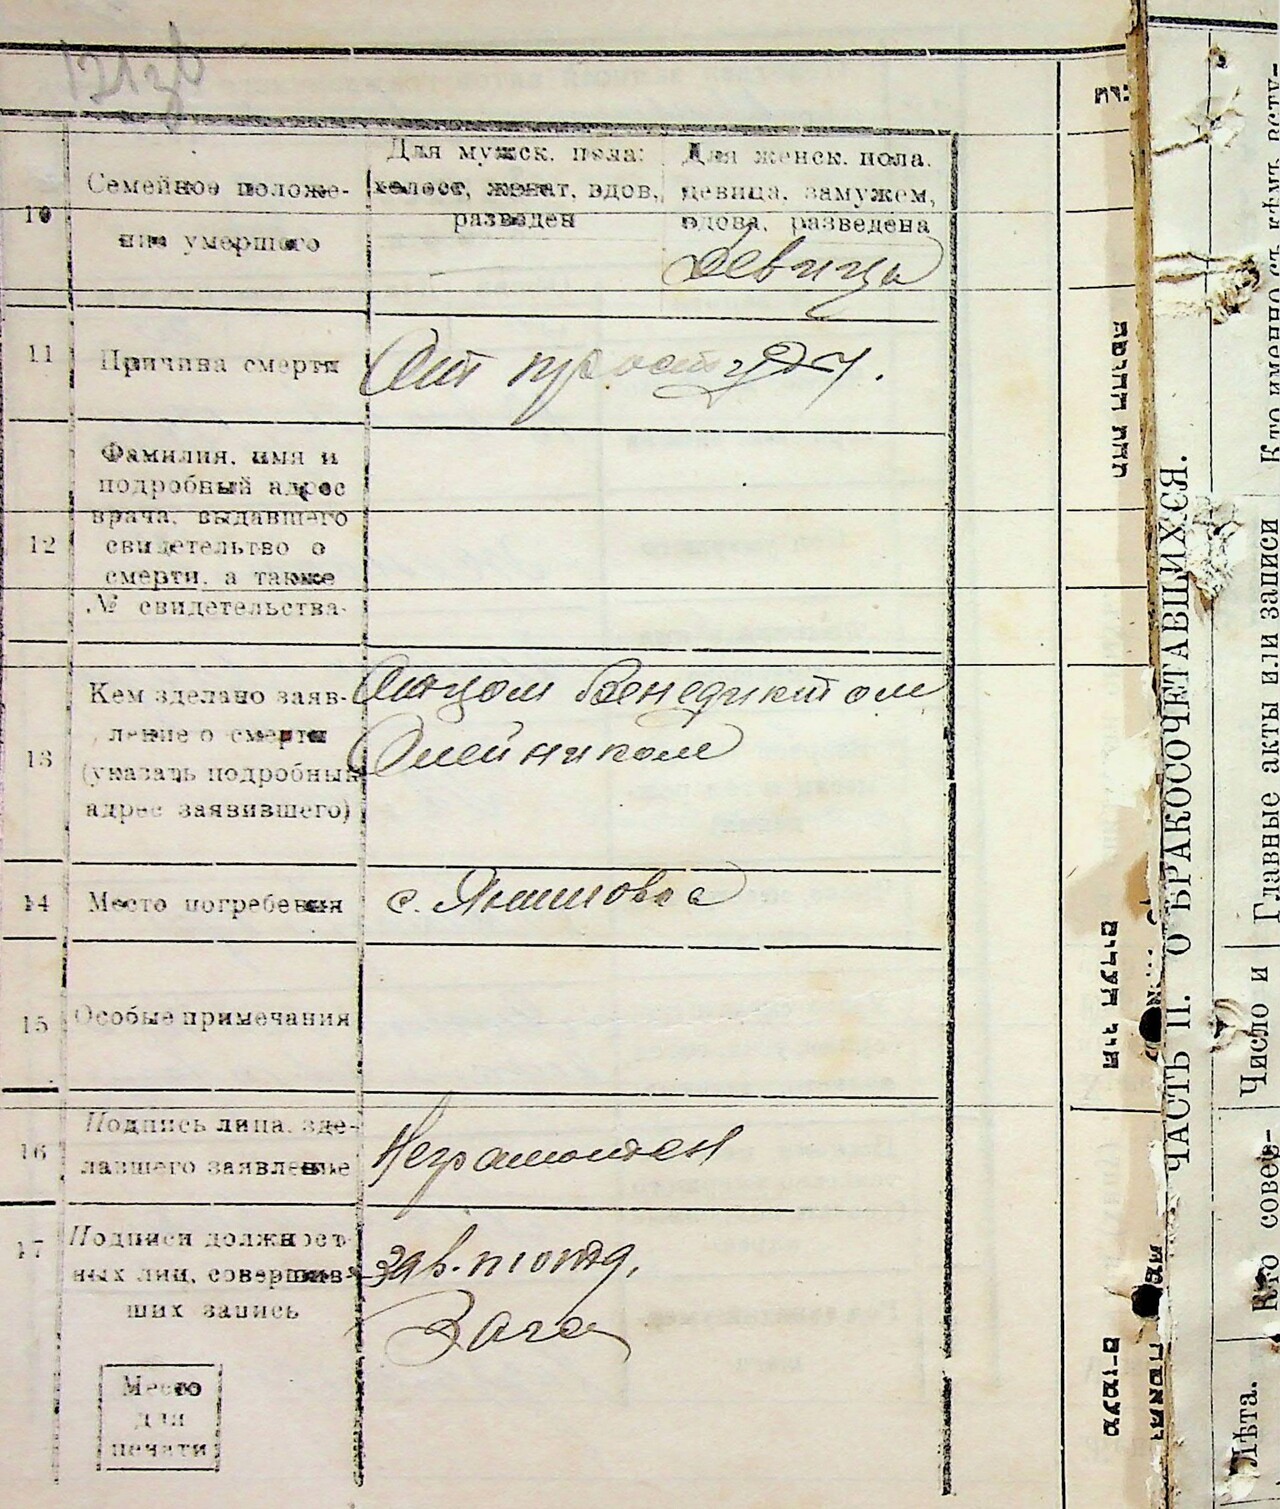 121зв
Для мужск. пола: холост, женат, вдов, разведен
Для женск. пола. девица, замужем, вдова, разведена
10
Семейное положе-
ние умершого
Девица
11
Причина смерти
От простуды.
12
Фамилия, имя и
подробный адрес
врача, выдавшего
свидетельство о
смерти, а также
№ свидетельства.
13
Кем зделано заяв-
ление о смерти
(указать подробный
адрес заявившего)
Отцом Венедиктом
Олейником
14
Место погребения
с.
15
Особые примечания
16
Подпись лица, зде-
лавшего заявление
Неграмотен
17
Подписи должност-
ных лиц, совершив-
ших запись
Зав.
Место
для
печати
ЧАСТЬ II. О БРАКОСОЧЕТАВШИХСЯ.
Кто именно съ кѣмъ всту-
Главные акты или записи
Число и
Кто совер-
Лѣта.